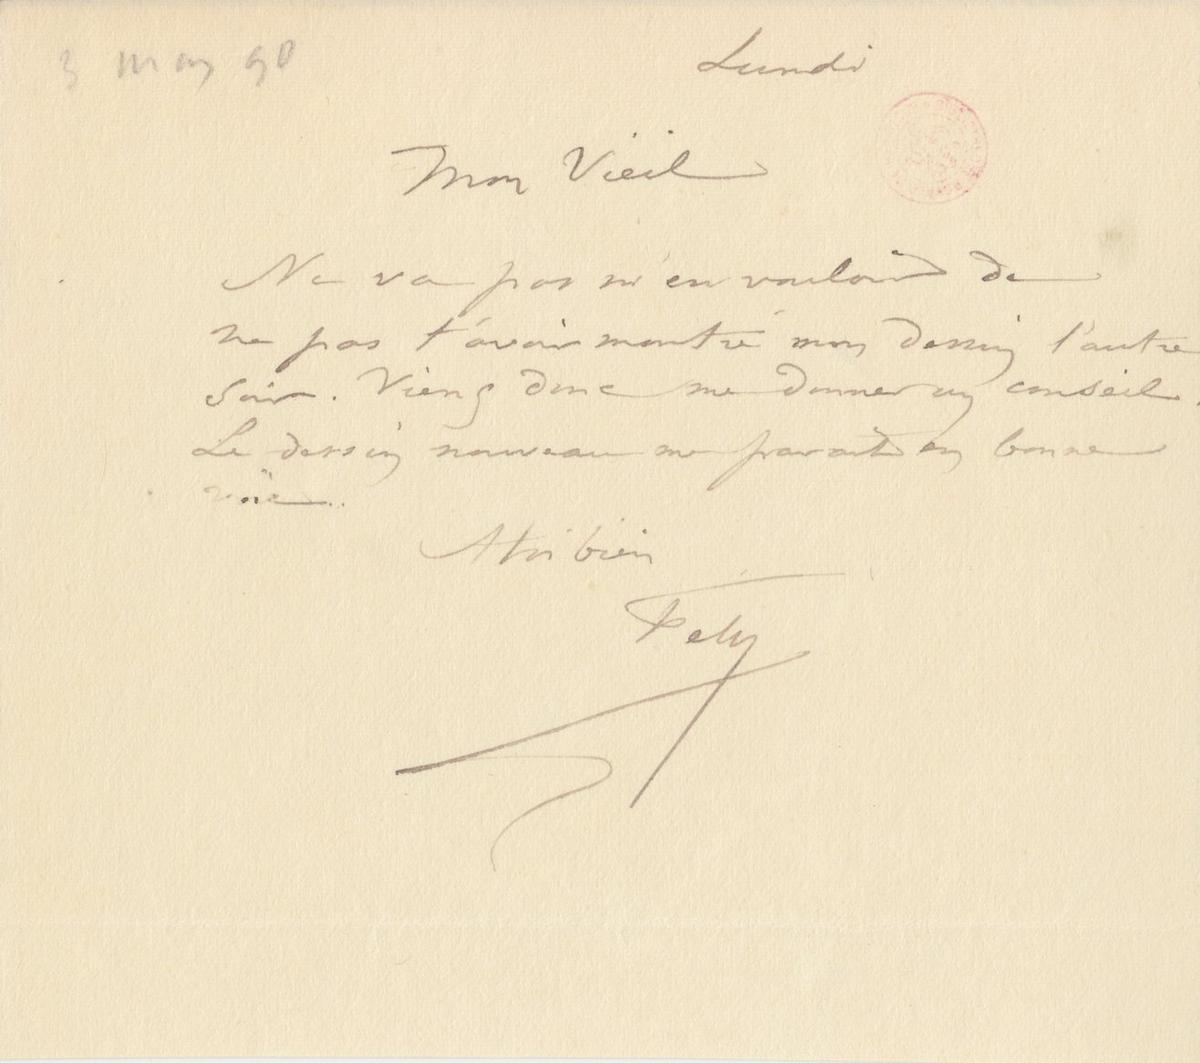 3 may 90
Lundi
Mon Vieil
Ne va pas m'en vouloir de
ne pas t'avoir montré mon dessin l'autre
soir. Viens donc me donner un conseil.
Le dessin nouveau me parait en bonne
voie..
A toi bien
Fély